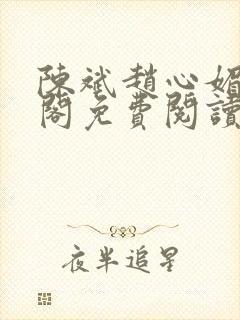 陳斌趙心媚
閣免費閱讀
夜半追星